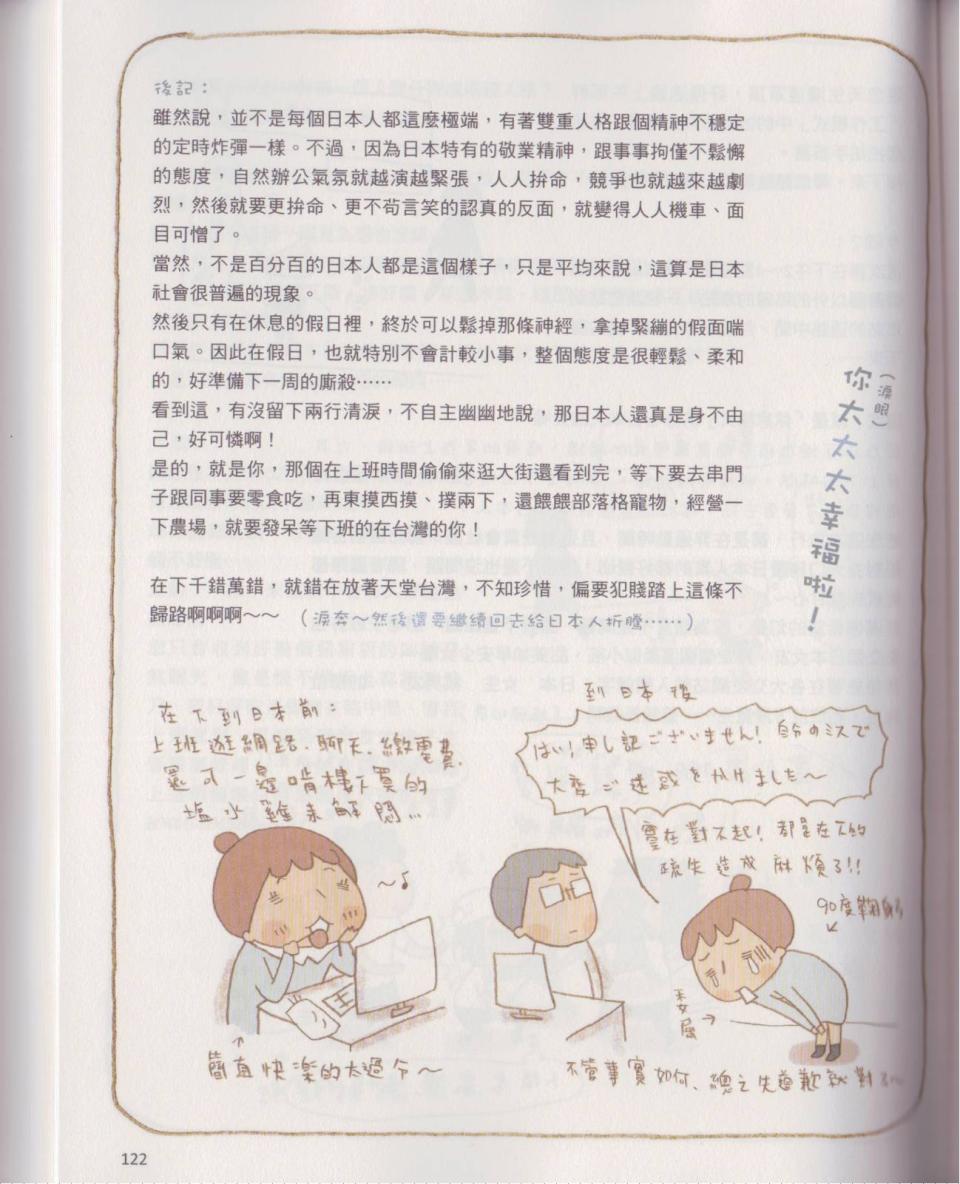 後記：
雖然說，並不是每個日本人都這麼極端，有著雙重人格跟個精神不穩定
的定時炸彈一樣。不過，因為日本特有的敬業精神，跟事事拘僅不鬆懈
的態度，自然辦公氣氛就越演越緊張，人人拚命，競爭也就越來越劇
烈，然後就要更拚命、更不苟言笑的認真的反面，就變得人人機車、面
目可憎了。
當然，不是百分百的日本人都是這個樣子，只是平均來說，這算是日本
社會很普遍的現象。
然後只有在休息的假日裡，終於可以鬆掉那條神經，拿掉緊繃的假面喘
口氣。因此在假日，也就特別不會計較小事，整個態度是很輕鬆、柔和
的，好準備下一周的廝殺……
看到這，有沒留下兩行清淚，不自主幽幽地說，那日本人還真是身不由
己，好可憐啊！
是的，就是你，那個在上班時間偷偷來逛大街還看到完，等下要去串門
子跟同事要零食吃，再東摸西摸、撲兩下，還餵餵部落格寵物，經營一
下農場，就要發呆等下班的在台灣的你！
（淚眼）
你太太太幸福啦！
在下千錯萬錯，就錯在放著天堂台灣，不知珍惜，偏要犯賤踏上這條不
歸路啊啊啊～～（淚奔～然後還要繼續回去給日本人折騰……）
在下到日本前：
上班逛網路、聊天、繳電費，
還可一邊啃樓下買的
塩水雞來解悶…
～♪
簡直快樂的太過份～
到日本後
はい！申し訳ございません！今のミスで
大変ご迷惑をかけました～
實在對不起！都是在下的
疏失造成麻煩了！！
90度鞠躬
委屈→
不管事實如何、總之先道歉就對了～
122